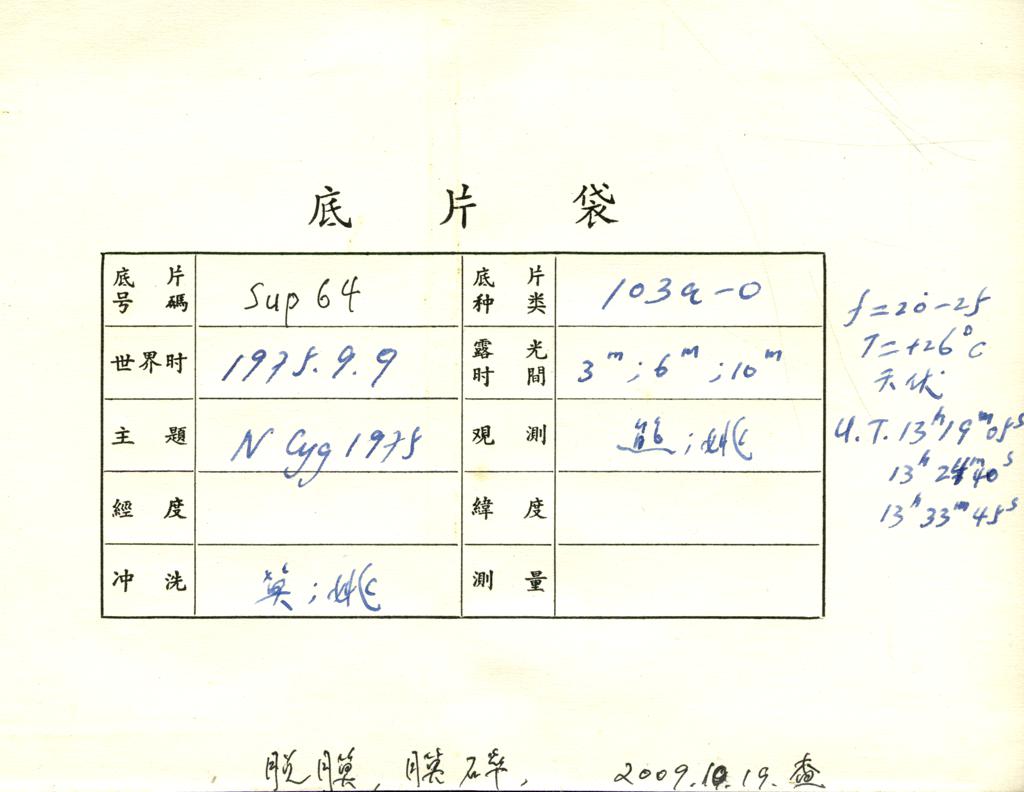 底片袋
底片号碼 Sup 64 底片种类 103a-O
世界时 1975.9.9 露光时間 3ᵐ; 6ᵐ; 10ᵐ
主題 N Cyg 1975 观測 熊; 姚
經度 緯度
冲洗 莫; 姚 測量
f=20-25
T=+26°C
U.T. 13ʰ19ᵐ05ˢ
13ʰ 24ᵐ40ˢ
13ʰ 33ᵐ 45ˢ
脱膜, 膜碎, 2009.10.19. 查